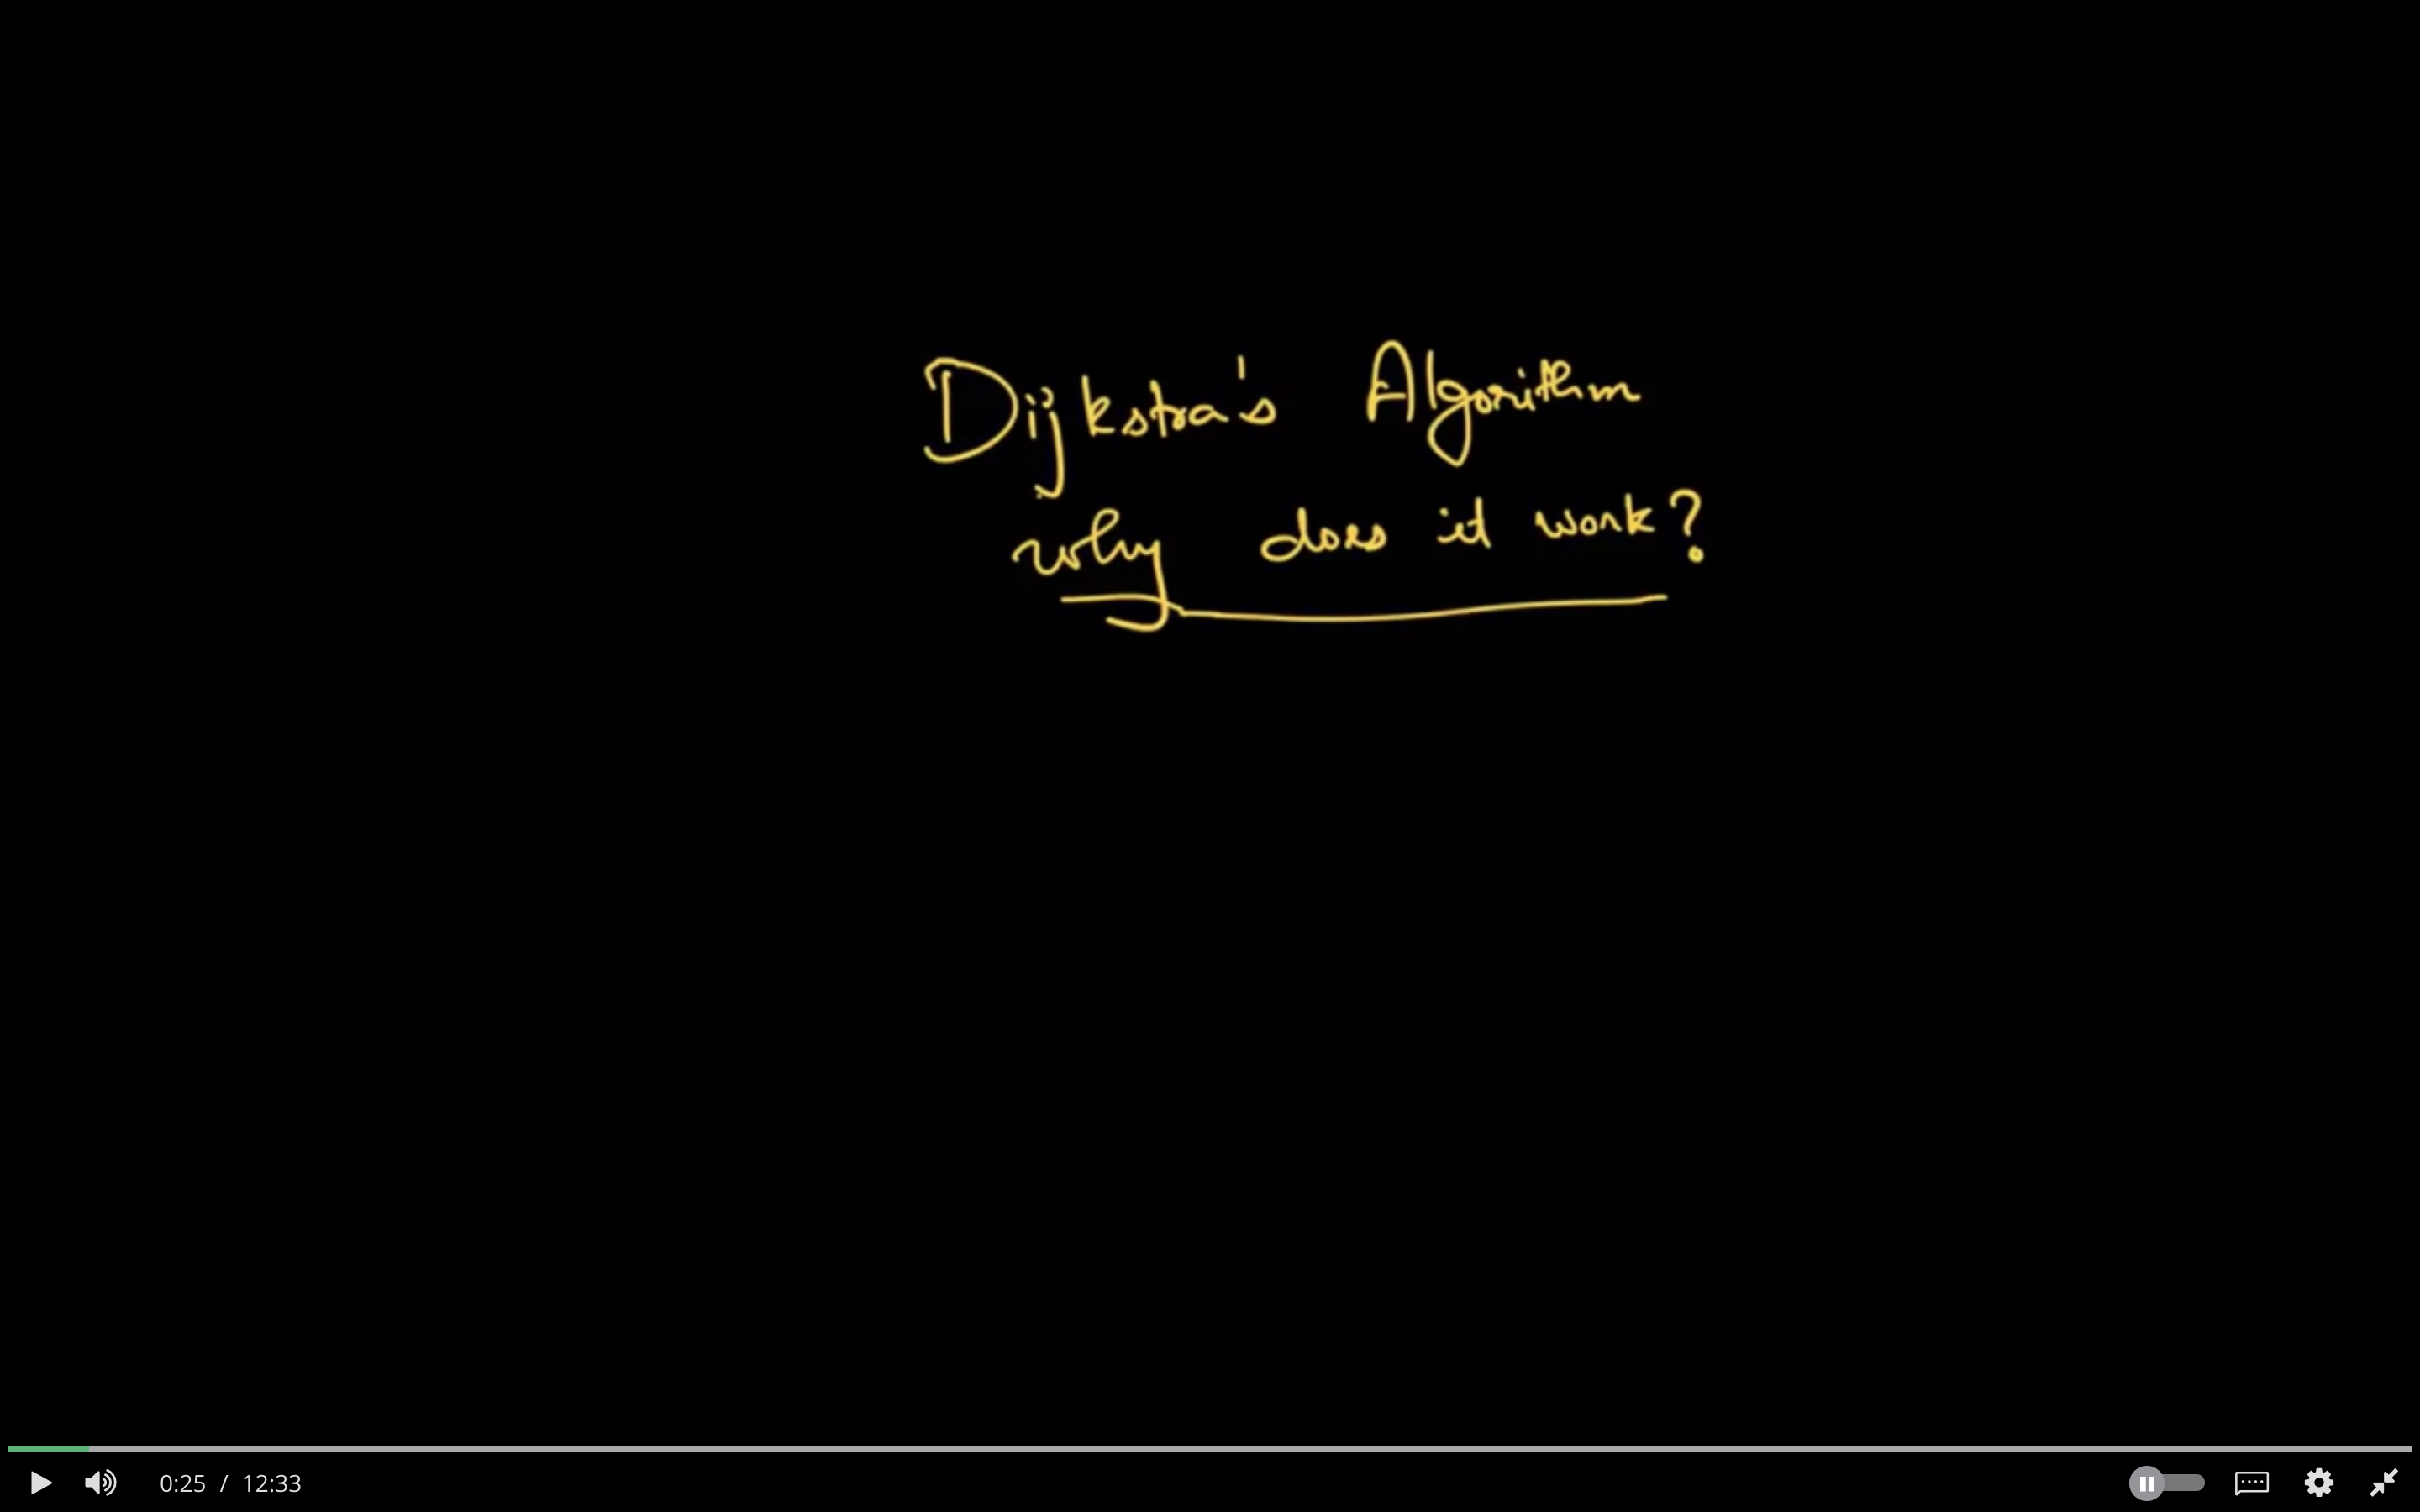 Dijkstra's Algorithm
why does it work?
0:25 / 12:33